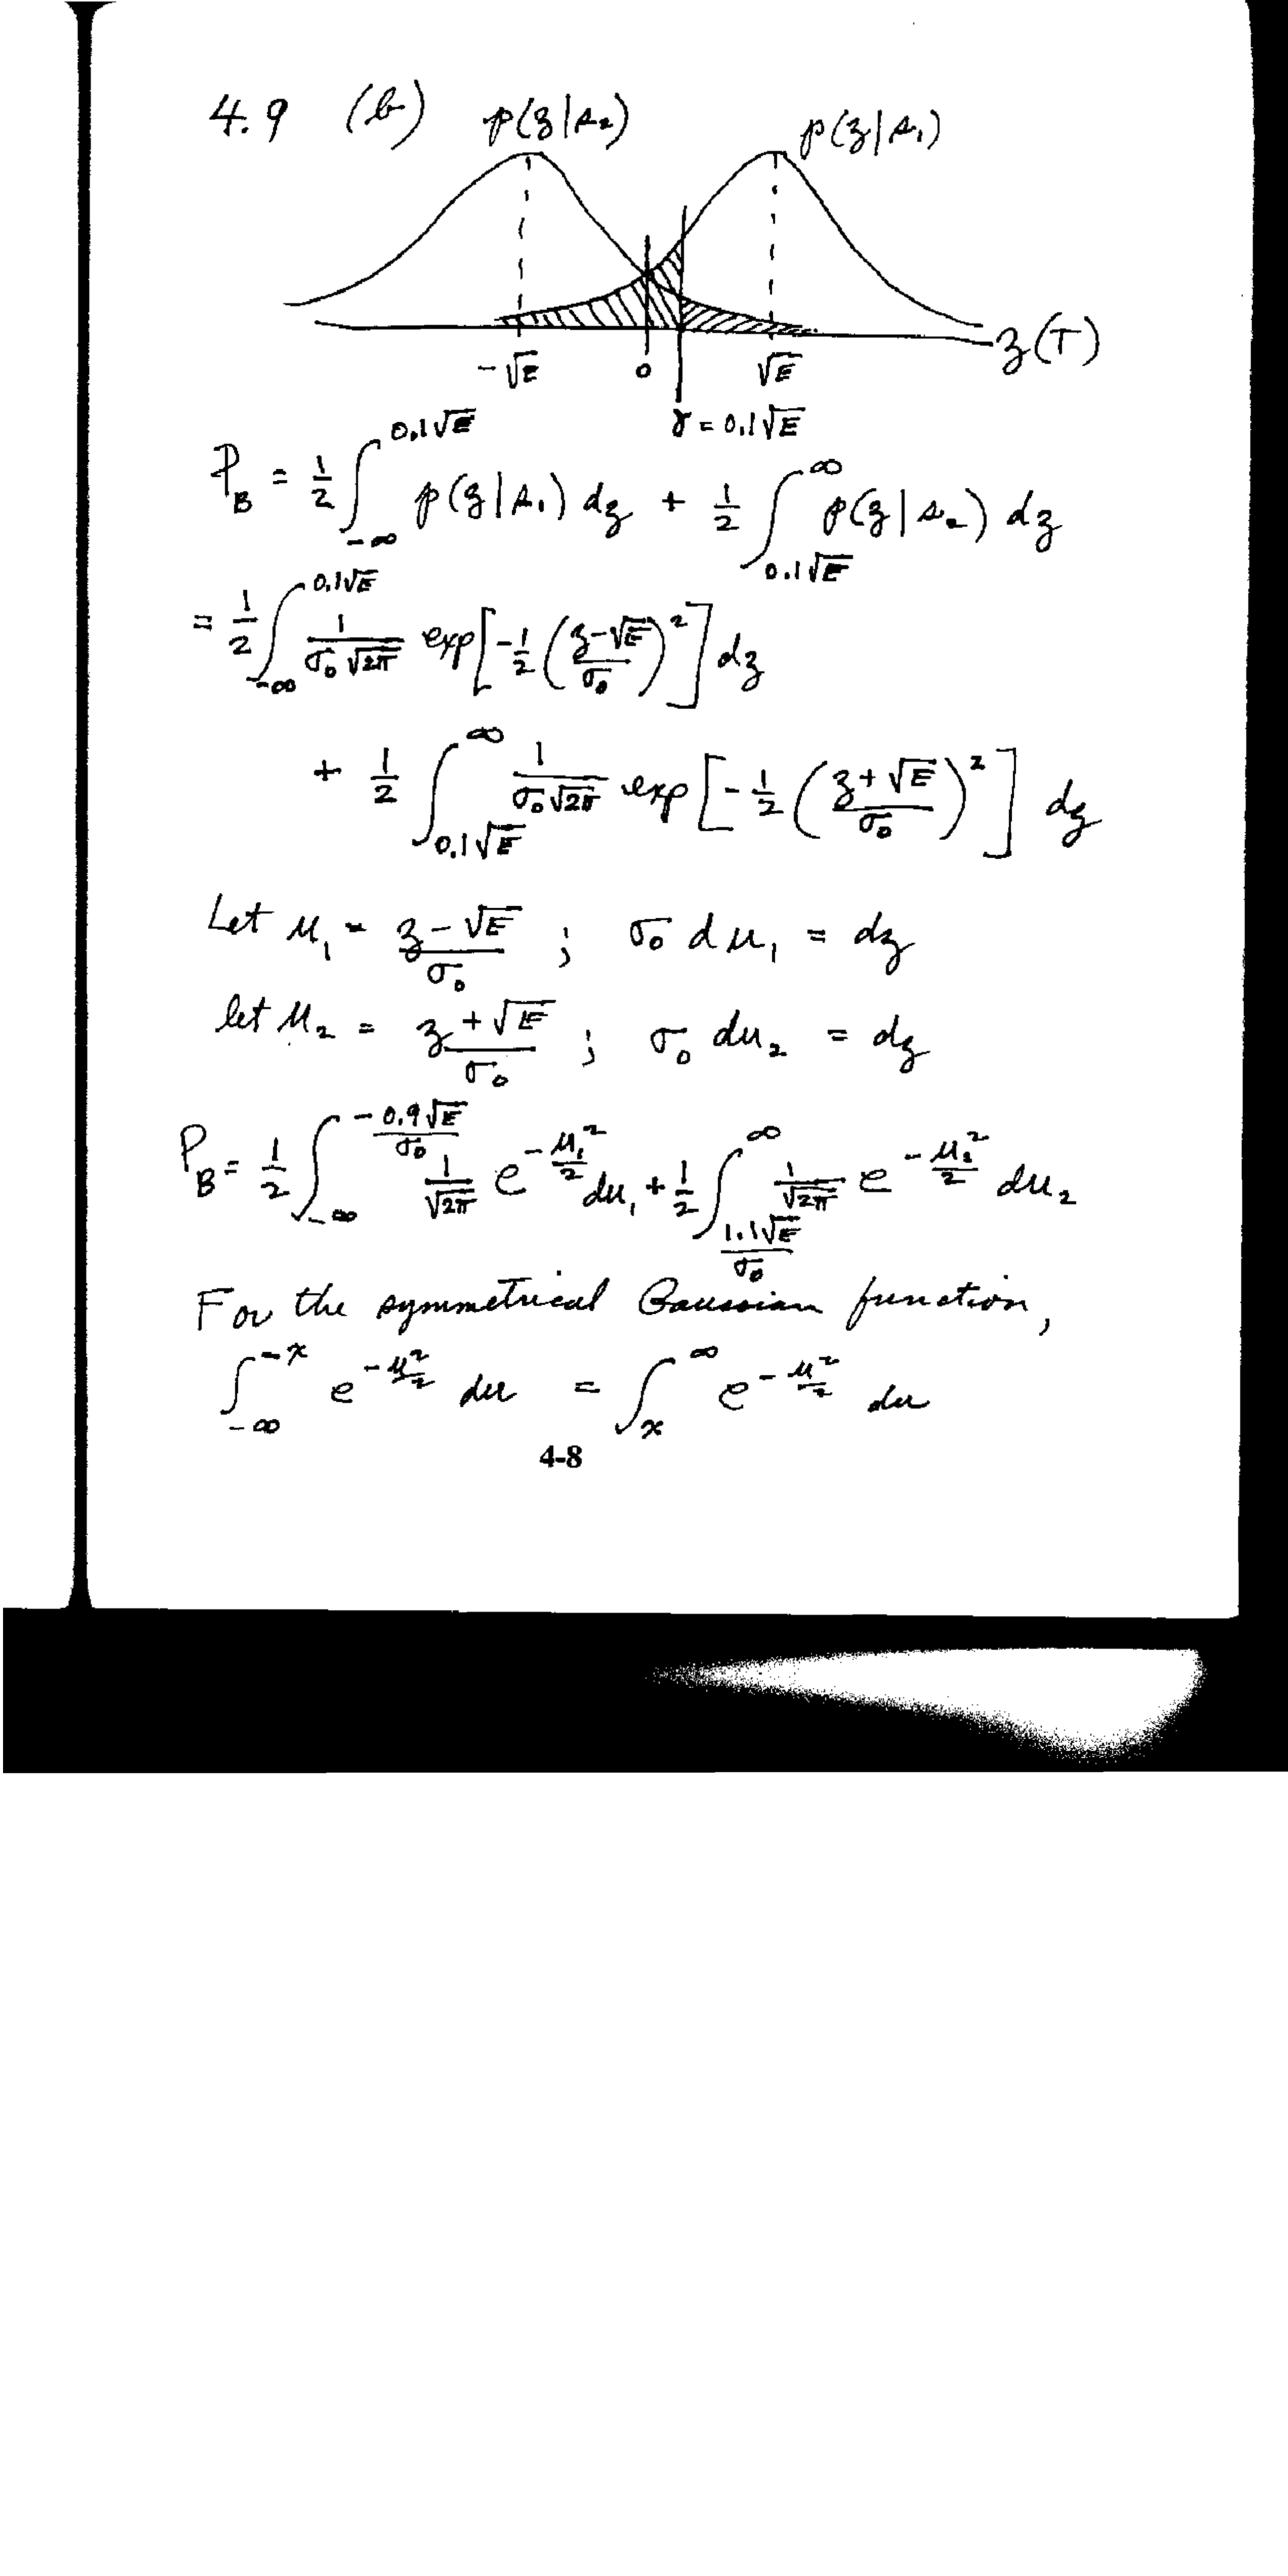 4.9 (b) p(z|s₂) p(z|s₁)
-√E 0 √E z(T)
γ = 0.1√E
P_B = 1/2 ∫_{-∞}^{0.1√E} p(z|s₁) dz + 1/2 ∫_{0.1√E}^{∞} p(z|s₂) dz
= 1/2 ∫_{-∞}^{0.1√E} 1/(σ₀√2π) exp[-1/2 ((z-√E)/σ₀)²] dz
+ 1/2 ∫_{0.1√E}^{∞} 1/(σ₀√2π) exp[-1/2 ((z+√E)/σ₀)²] dz
Let u₁ = (z-√E)/σ₀ ; σ₀ du₁ = dz
let u₂ = (z+√E)/σ₀ ; σ₀ du₂ = dz
P_B = 1/2 ∫_{-∞}^{-0.9√E/σ₀} 1/√2π e^{-u₁²/2} du₁ + 1/2 ∫_{1.1√E/σ₀}^{∞} 1/√2π e^{-u₂²/2} du₂
For the symmetrical Gaussian function,
∫_{-∞}^{-x} e^{-u²/2} du = ∫_{x}^{∞} e^{-u²/2} du
4-8